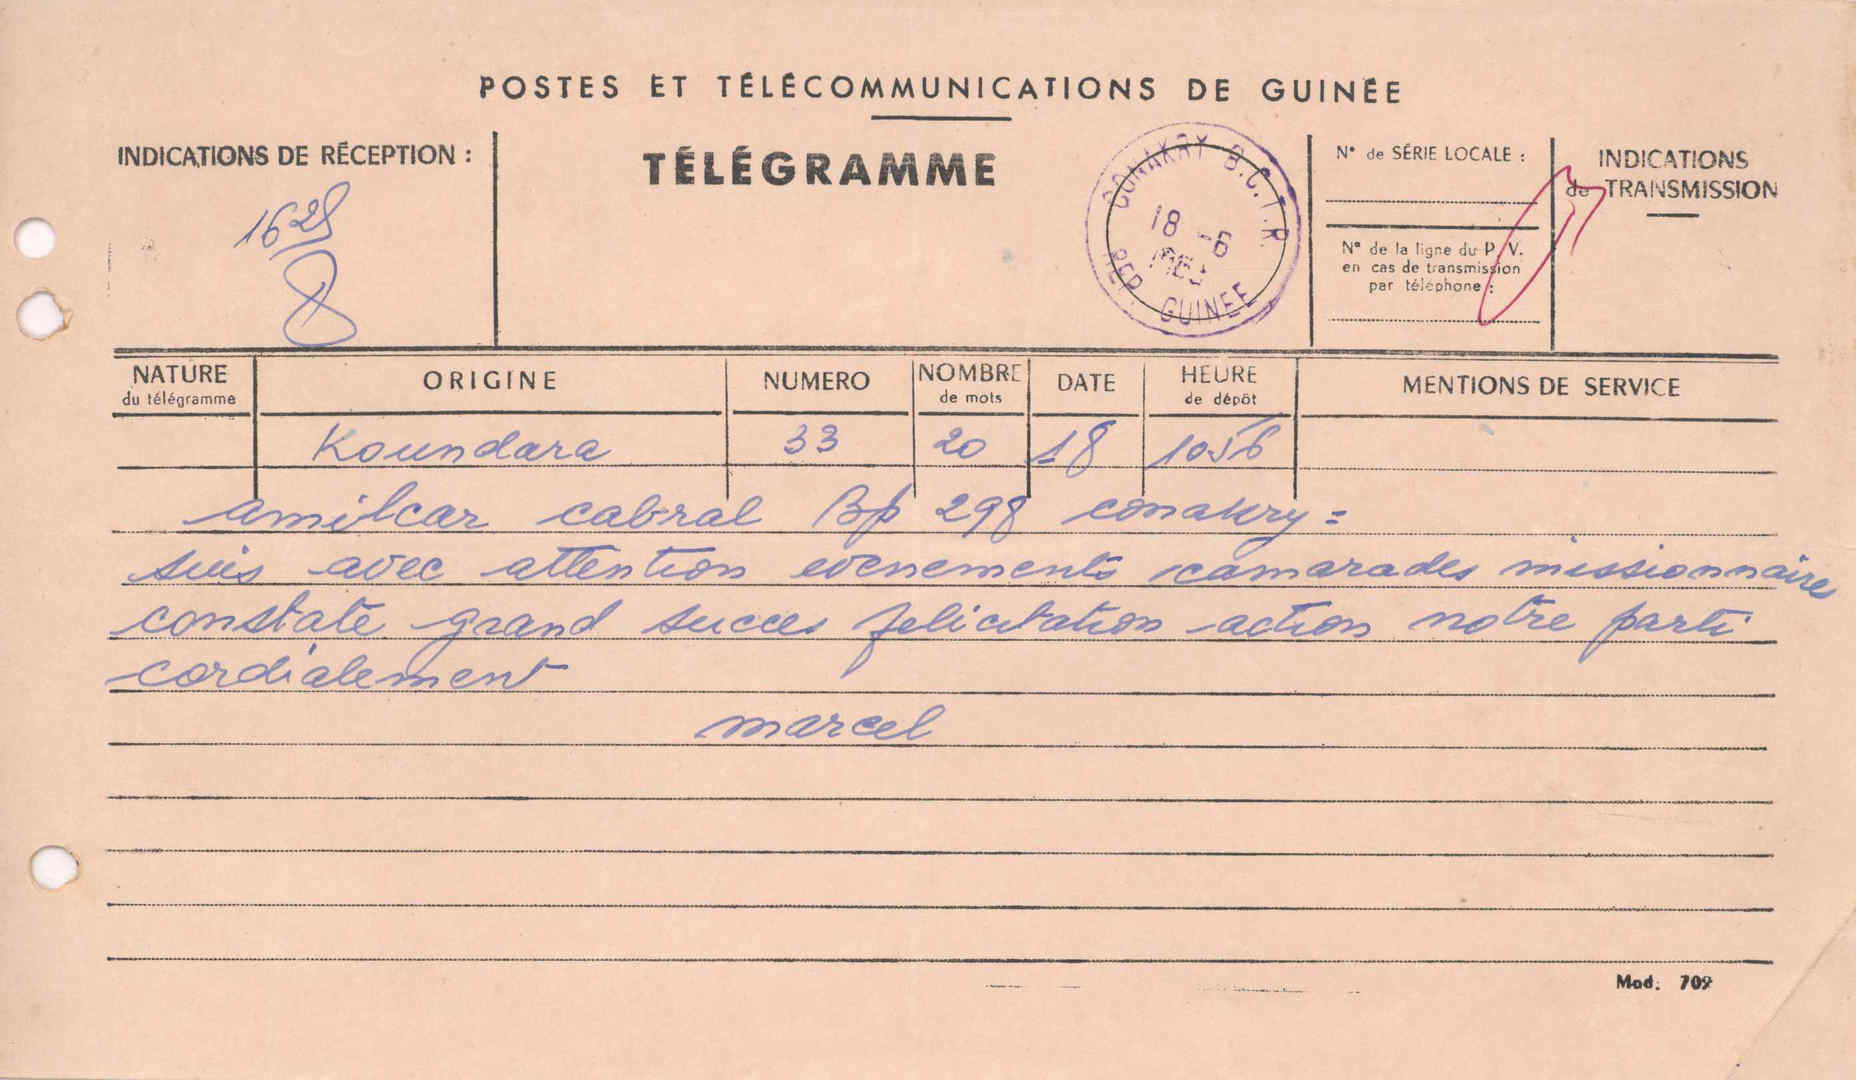 POSTES ET TÉLÉCOMMUNICATIONS DE GUINÉE
INDICATIONS DE RÉCEPTION :
TÉLÉGRAMME
CONAKRY B.C.T.R.
18 -6
REP. GUINEE
N° de SÉRIE LOCALE :
N° de la ligne du P. V.
en cas de transmission
par téléphone :
INDICATIONS
de TRANSMISSION
1628
NATURE
du télégramme
ORIGINE
NUMERO
NOMBRE
de mots
DATE
HEURE
de dépôt
MENTIONS DE SERVICE
Koundara 33 20 18 1056
amilcar cabral Bp 298 conakry =
suis avec attention evenements camarades missionnaire
constate grand succes felicitation action notre parti
cordialement
marcel
Mod. 709